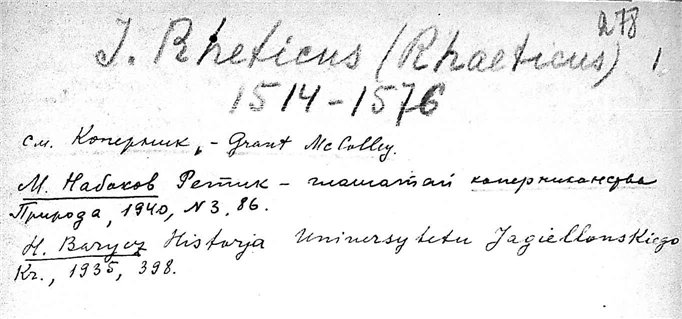 278
J. Rheticus (Rhaeticus) 1.
1514-1576
см. Коперник, - Grant McColley.
М. Набоков Ретик - глашатай коперниканства
Природа, 1940, N3, 86.
H. Barycz Historja Uniwersytetu Jagiellonskiego
Kr., 1935, 398.